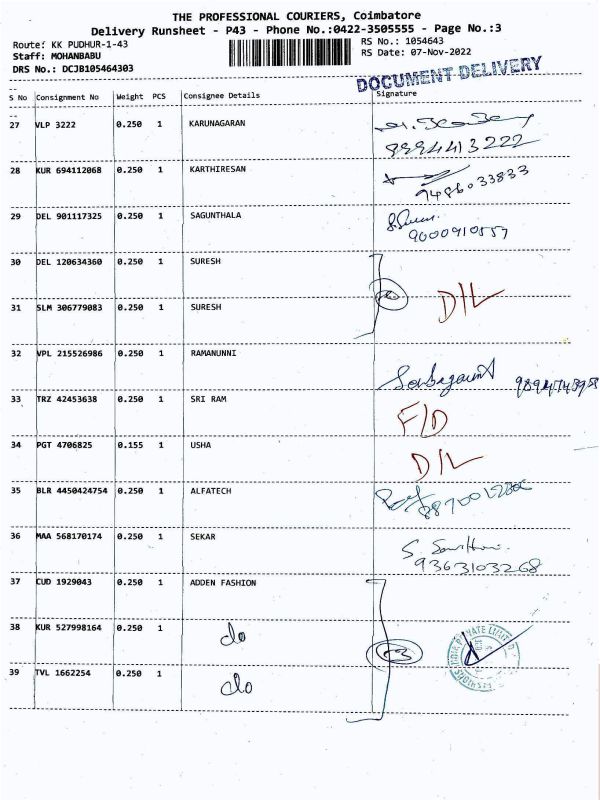 THE PROFESSIONAL COURIERS, Coimbatore
Delivery Runsheet - P43 - Phone No.:0422-3505555 - Page No.:3
Route: KK PUDHUR-1-43
RS No.: 1054643
Staff: MOHANBABU
RS Date: 07-Nov-2022
DRS No.: DCJB105464303
DOCUMENT DELIVERY
S No Consignment No Weight PCS Consignee Details Signature
27 VLP 3222 0.250 1 KARUNAGARAN
9994413222
28 KUR 694112068 0.250 1 KARTHIRESAN
9486033833
29 DEL 901117325 0.250 1 SAGUNTHALA
9000910557
30 DEL 120634360 0.250 1 SURESH
D/L
31 SLM 306779083 0.250 1 SURESH
32 VPL 215526986 0.250 1 RAMANUNNI
33 TRZ 42453638 0.250 1 SRI RAM
F/D
34 PGT 4706825 0.155 1 USHA
D/L
35 BLR 4450424754 0.250 1 ALFATECH
36 MAA 568170174 0.250 1 SEKAR
9363103268
37 CUD 1929043 0.250 1 ADDEN FASHION
38 KUR 527998164 0.250 1 do
39 TVL 1662254 0.250 1 do